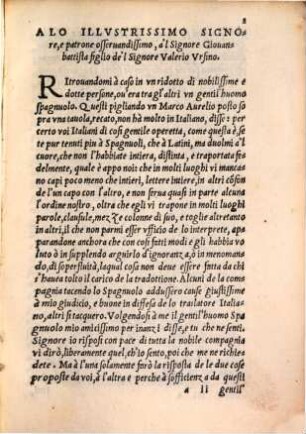 A LO ILLVSTRISSIMO SIGNO
re, e patrone osseruandissimo, a'l Signore Giouam
battista figlio de'l Signore Valerio Vrsino.
RItrouandomi à caso in vn ridotto di nobilissime e
dotte persone, ou'era tra gl'altri vn gentil'huomo
Spagnuolo. Questi pigliando vn Marco Aurelio posto so
pra vna tauola, recato, non hà molto in Italiano, disse: per
certo voi Italiani di cosi gentile operetta, come questa è, se
te pur tenuti piu à Spagnuoli, che à Latini, ma duolmi a'l
cuore, che non l'habbiate intiera, distinta, e traportata fra
delmente, quale è appo noi: che in molti luoghi vi manca
no capi poco meno che intieri, lettere intiere, in altri cōsta
de l'un capo con l'altro, e non serua quasi in parte alcuna
l'ordine nostro, oltra che egli vi trapone in molti luoghi
parole, clausule, mezze colonne di suo, e toglie altretanto
in altri, il che non parmi esser vfficio de lo interprete, ap
parandone anchora che con cosi fatti modi e gli habbia vo
luto in supplendo arguirlo d'ignoranza, ò in menomando,
di superfluità, laqual cosa non deue essere fatta da chi
s'haue à tolto il carico de la tradottione. Alcuni de la com
pagnia tacendo lo Spagnuolo addussero cause giustissime
à mio giudicio, e buone in difesa de lo traslatore Italia
no, altri si tacquero. Volgendosi à me il gentil'huomo Spa
gnuolo mio amicissimo per inanzi disse, e tu che ne senti.
Signore io risposi con pace di tutta la nobile compagnia
vi dirò, liberamente quel, ch'io sento, poi che me ne richie
dete. Ma à l'una solamente farò la risposta de le due cose
proposte da voi, à l'altra e perche à sofficienza da questi
a ii gentil'